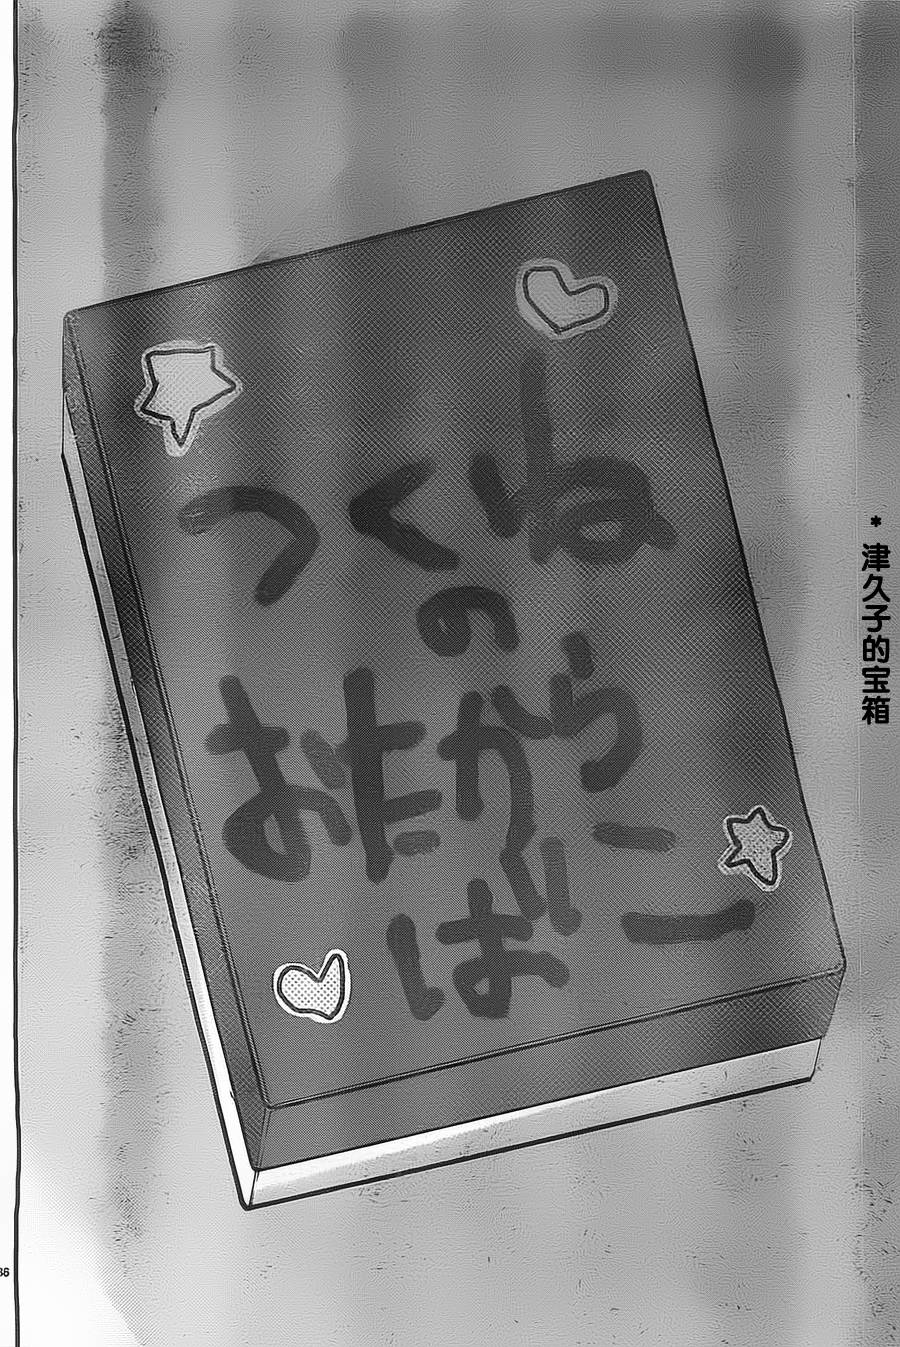 つくね
の
おたから
ばこ
*津久子的宝箱
36